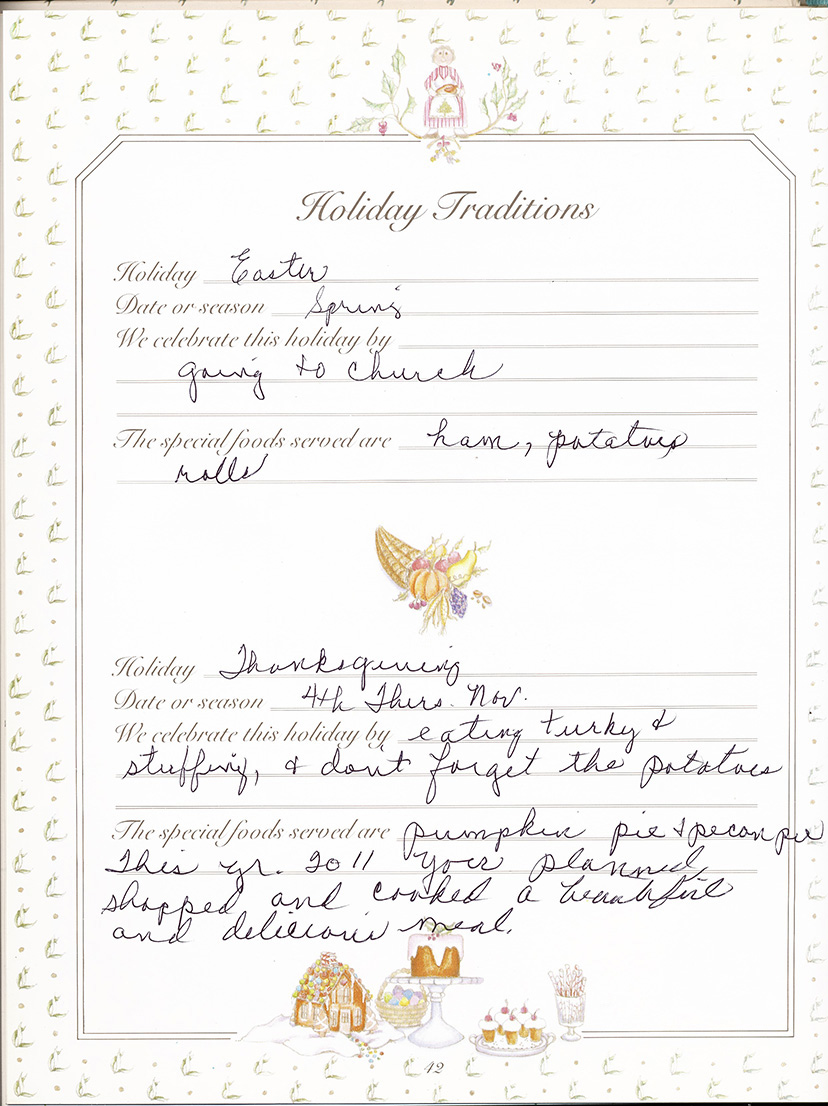 Holiday Traditions
Holiday Easter
Date or season Spring
We celebrate this holiday by
going to church
The special foods served are ham, potatoes
rolls
Holiday Thanksgiving
Date or season 4th Thurs. Nov.
We celebrate this holiday by eating turky &
stuffing, & don't forget the potatoes
The special foods served are pumpkin pie & pecan pie
This yr. 2011 you planned,
shopped and cooked a beautiful
and delicious meal.
42